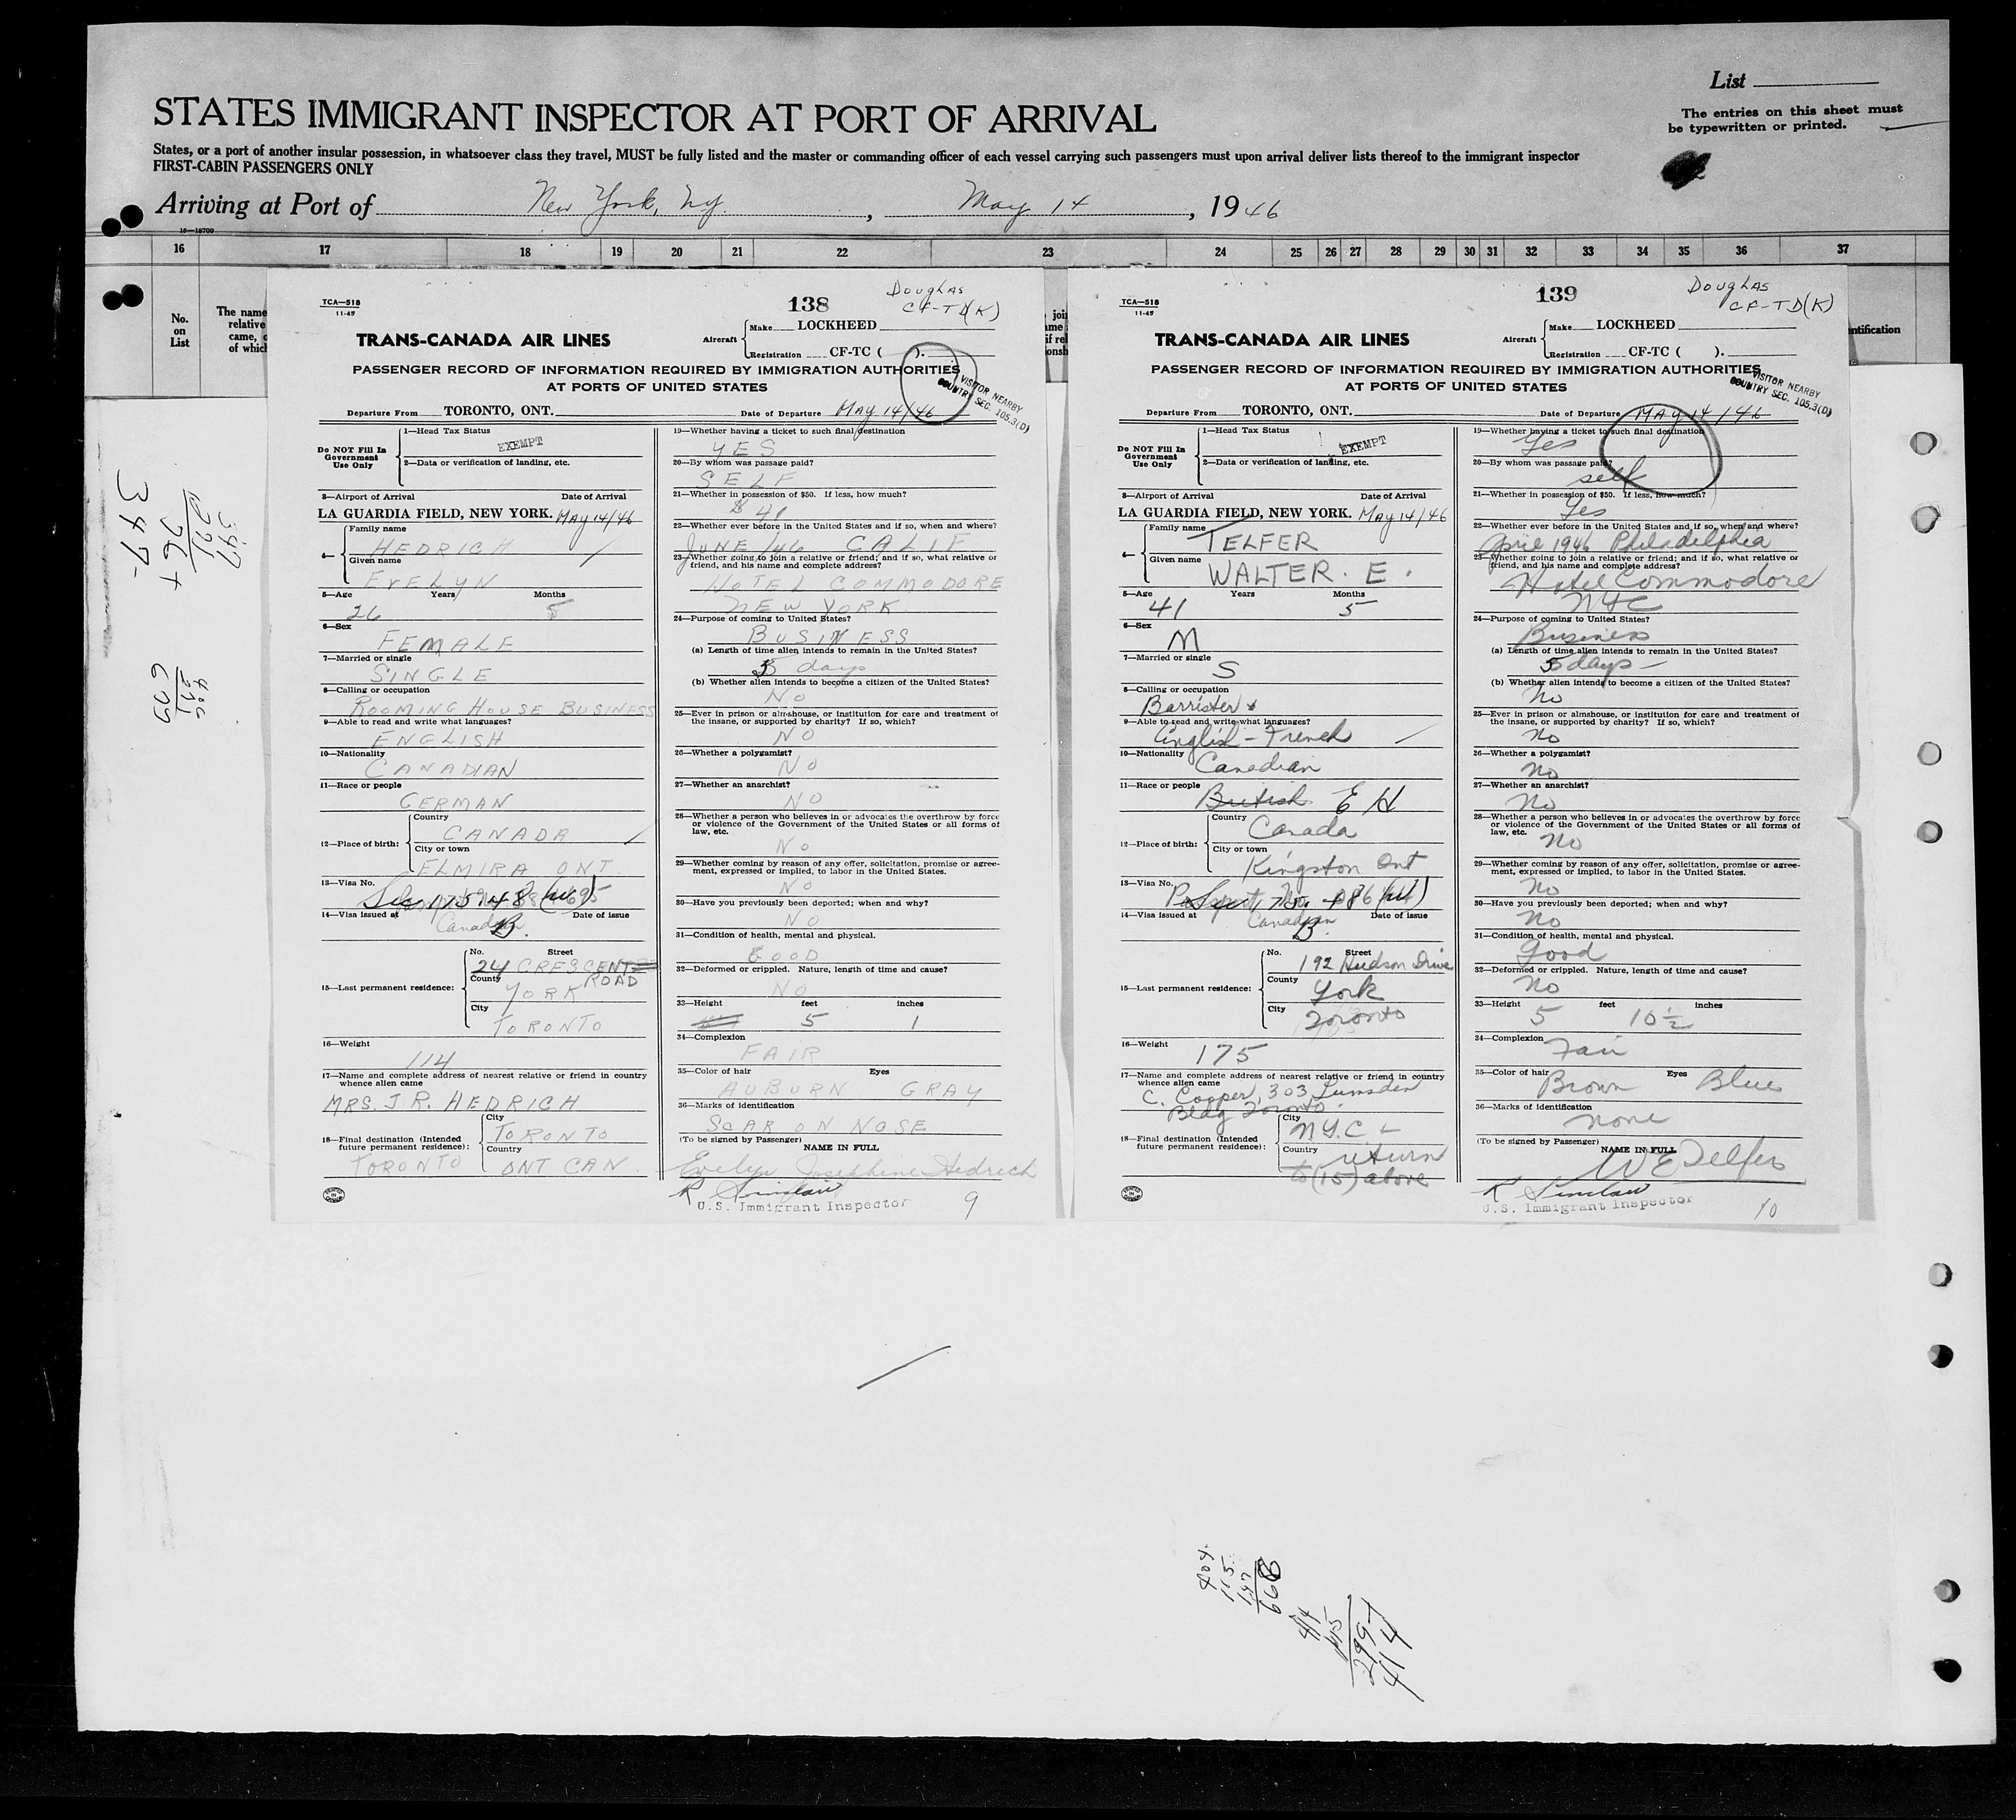 List
The entries on this sheet must
be typewritten or printed.
STATES IMMIGRANT INSPECTOR AT PORT OF ARRIVAL
States, or a port of another insular possession, in whatsoever class they travel, MUST be fully listed and the master or commanding officer of each vessel carrying such passengers must upon arrival deliver lists thereof to the immigrant inspector
FIRST-CABIN PASSENGERS ONLY
Arriving at Port of New York, NY. , May 14 , 1946
16—18700
16 17 18 19 20 21 22 23 24 25 26 27 28 29 30 31 32 33 34 35 36 37
No.
on
List
The name
relative
came, o
of which
TCA—518
11-45
138
DOUGLAS
CF-TD(K)
TRANS-CANADA AIR LINES
Aircraft
Make LOCKHEED
Registration CF-TC ( ).
PASSENGER RECORD OF INFORMATION REQUIRED BY IMMIGRATION AUTHORITIES
AT PORTS OF UNITED STATES
VISITOR NEARBY
COUNTRY SEC. 105.3(D)
Departure From TORONTO, ONT. Date of Departure MAY 14/46
Do NOT Fill In
Government
Use Only
1—Head Tax Status
EXEMPT
2—Data or verification of landing, etc.
3—Airport of Arrival Date of Arrival
LA GUARDIA FIELD, NEW YORK. MAY 14/46
4—
Family name
HEDRICH
Given name
EVELYN
5—Age Years Months
26 5
6—Sex
FEMALE
7—Married or single
SINGLE
8—Calling or occupation
ROOMING HOUSE BUSINESS
9—Able to read and write what languages?
ENGLISH
10—Nationality
CANADIAN
11—Race or people
GERMAN
12—Place of birth:
Country
CANADA
City or town
ELMIRA ONT.
13—Visa No.
14—Visa issued at Date of issue
Canadian
15—Last permanent residence:
No. Street
24 CRESCENT
ROAD
County
YORK
City
TORONTO
16—Weight
114
17—Name and complete address of nearest relative or friend in country
whence alien came
MRS. J. R. HEDRICH
18—Final destination (Intended
future permanent residence):
City
TORONTO
Country
TORONTO ONT CAN.
19—Whether having a ticket to such final destination
YES
20—By whom was passage paid?
SELF
21—Whether in possession of $50. If less, how much?
$ 40
22—Whether ever before in the United States and if so, when and where?
JUNE /46 CALIF
23—Whether going to join a relative or friend; and if so, what relative or
friend, and his name and complete address?
HOTEL COMMODORE
NEW YORK
24—Purpose of coming to United States?
BUSINESS
(a) Length of time alien intends to remain in the United States?
5 days
(b) Whether alien intends to become a citizen of the United States?
NO
25—Ever in prison or almshouse, or institution for care and treatment of
the insane, or supported by charity? If so, which?
NO
26—Whether a polygamist?
NO
27—Whether an anarchist?
NO
28—Whether a person who believes in or advocates the overthrow by force
or violence of the Government of the United States or all forms of
law, etc.
NO
29—Whether coming by reason of any offer, solicitation, promise or agree-
ment, expressed or implied, to labor in the United States.
NO
30—Have you previously been deported; when and why?
NO
31—Condition of health, mental and physical.
GOOD
32—Deformed or crippled. Nature, length of time and cause?
NO
33—Height feet inches
5 1
34—Complexion
FAIR
35—Color of hair Eyes
AUBURN GRAY
36—Marks of identification
SCAR ON NOSE
(To be signed by Passenger) NAME IN FULL
Evelyn Josephine Hedrich
R Sinclair
U.S. Immigrant Inspector
9
TCA—518
11-45
139
DOUGLAS
CF-TD(K)
TRANS-CANADA AIR LINES
Aircraft
Make LOCKHEED
Registration CF-TC ( ).
ntification
PASSENGER RECORD OF INFORMATION REQUIRED BY IMMIGRATION AUTHORITIES
AT PORTS OF UNITED STATES
VISITOR NEARBY
COUNTRY SEC. 105.3(D)
Departure From TORONTO, ONT. Date of Departure MAY 14/46
Do NOT Fill In
Government
Use Only
1—Head Tax Status
EXEMPT
2—Data or verification of landing, etc.
3—Airport of Arrival Date of Arrival
LA GUARDIA FIELD, NEW YORK. MAY 14/46
4—
Family name
TELFER
Given name
WALTER. E.
5—Age Years Months
41 5
6—Sex
M
7—Married or single
S
8—Calling or occupation
Barrister
9—Able to read and write what languages?
English - French
10—Nationality
Canadian
11—Race or people
British. E H
12—Place of birth:
Country
Canada
City or town
Kingston Ont
13—Visa No.
14—Visa issued at Date of issue
Canadian
15—Last permanent residence:
No. Street
192 Hudson Drive
County
York
City
Toronto
16—Weight
175
17—Name and complete address of nearest relative or friend in country
whence alien came
C. Cooper, 303 Lumsden
Bldg Toronto.
18—Final destination (Intended
future permanent residence):
City
N.Y.C -
Country
return
to (15) above
19—Whether having a ticket to such final destination
Yes
20—By whom was passage paid?
self
21—Whether in possession of $50. If less, how much?
Yes
22—Whether ever before in the United States and if so, when and where?
April 1946 Philadelphia
23—Whether going to join a relative or friend; and if so, what relative or
friend, and his name and complete address?
Hotel Commodore
NYC
24—Purpose of coming to United States?
Business
(a) Length of time alien intends to remain in the United States?
5 days -
(b) Whether alien intends to become a citizen of the United States?
No
25—Ever in prison or almshouse, or institution for care and treatment of
the insane, or supported by charity? If so, which?
no
26—Whether a polygamist?
no
27—Whether an anarchist?
No
28—Whether a person who believes in or advocates the overthrow by force
or violence of the Government of the United States or all forms of
law, etc.
No
29—Whether coming by reason of any offer, solicitation, promise or agree-
ment, expressed or implied, to labor in the United States.
No
30—Have you previously been deported; when and why?
No
31—Condition of health, mental and physical.
Good
32—Deformed or crippled. Nature, length of time and cause?
No
33—Height feet inches
5 10 1/2
34—Complexion
Fair
35—Color of hair Eyes
Brown Blue
36—Marks of identification
none
(To be signed by Passenger) NAME IN FULL
W E Telfer
R Sinclair
U.S. Immigrant Inspector
10
347
221
26+
347-
404
115
147
666
2997
414